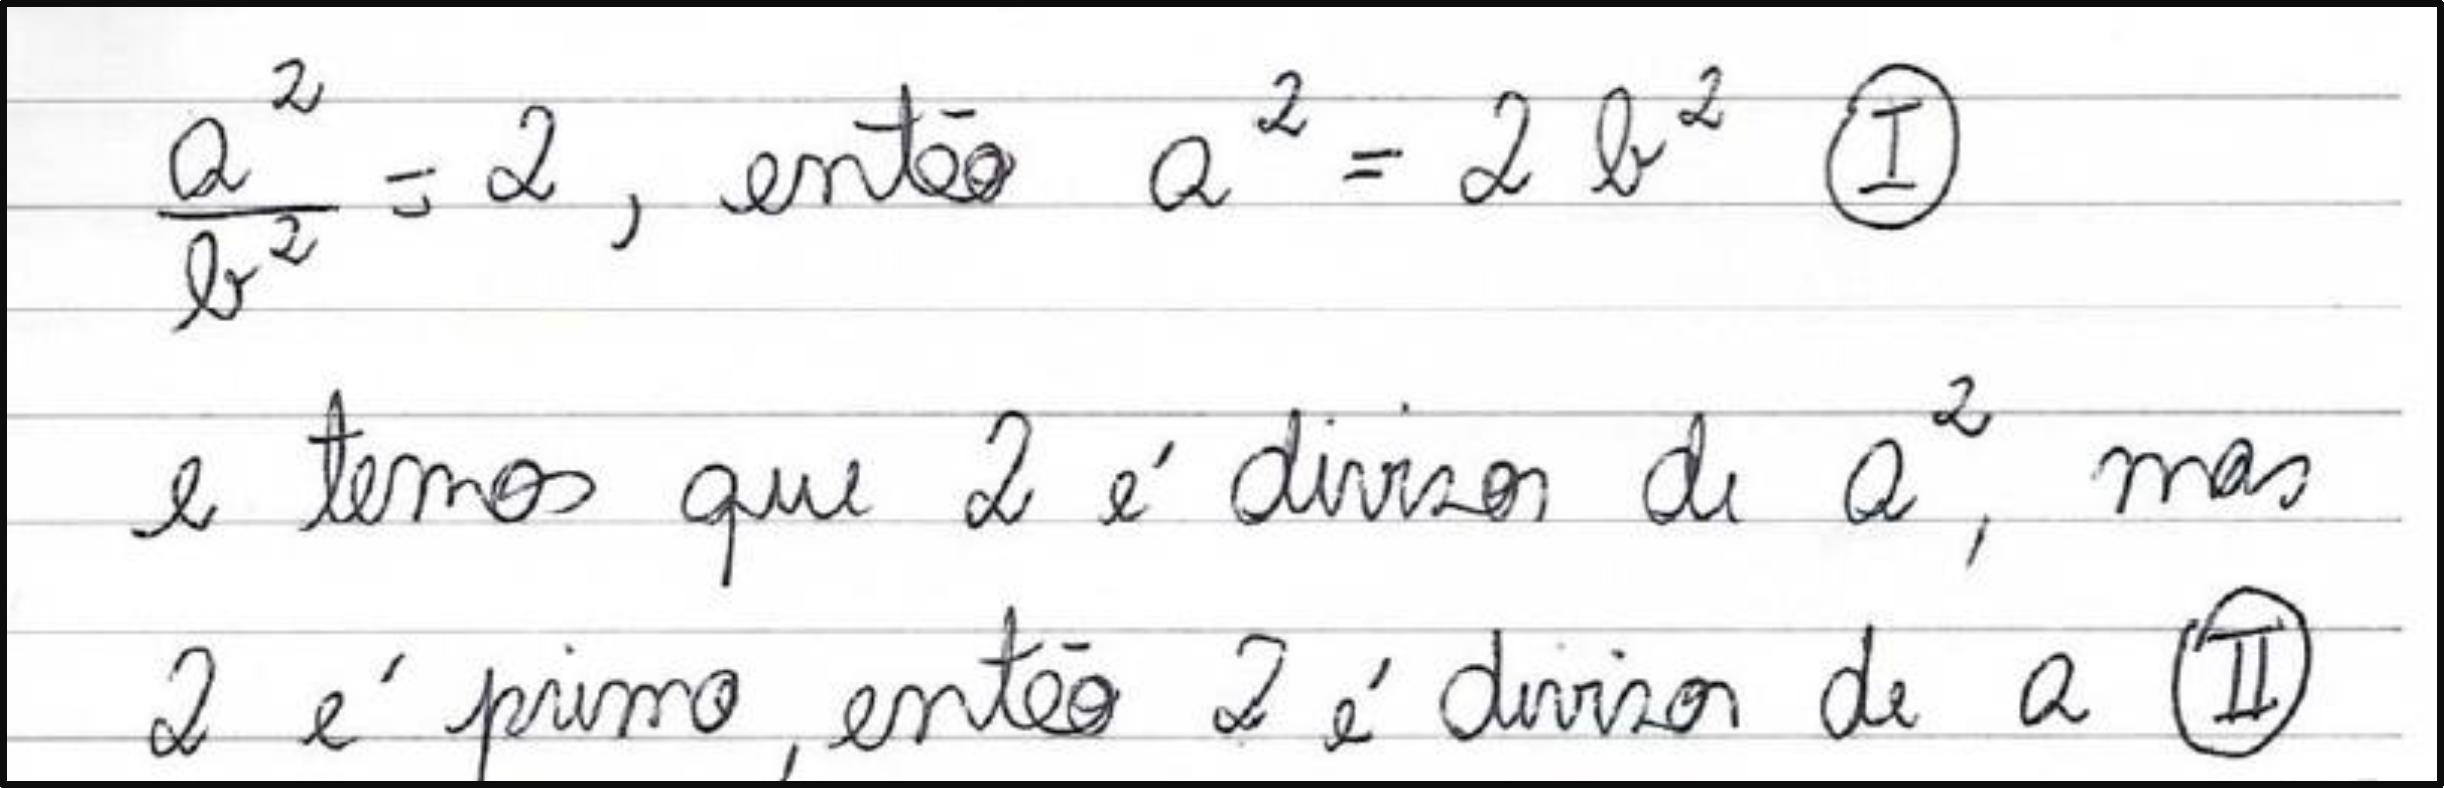 a²/b² = 2, então a² = 2 b² Ⓘ
e temos que 2 é divisor de a², mas
2 é primo, então 2 é divisor de a Ⓘ Ⓘ